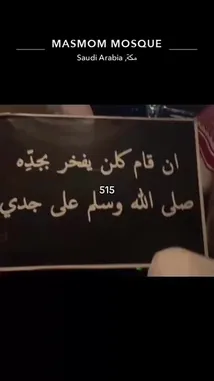 MASMOM MOSQUE
Saudi Arabia مكة,
ان قام كلن يفخر بجدِّه
515
صلى الله وسلم على جدي